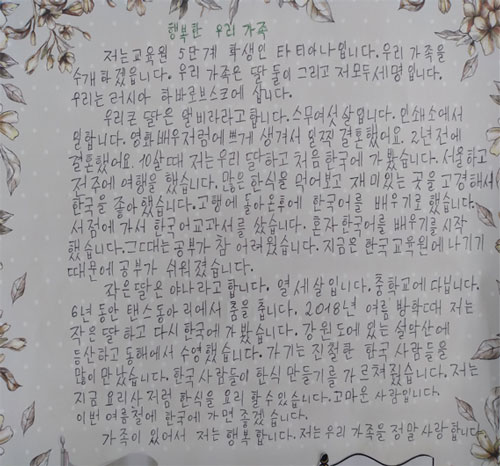 행복한 우리 가족
저는교육원 5단계 학생인 타티아나입니다. 우리 가족을
수개하겠읍니다. 우리 가족은 딸 둘이 그리고 저모두세명입니다.
우리는 러시아 하바로브스크에 삽니다.
우리큰 딸은 엘비라라고합니다. 스무여섯살입니다. 인쇄소에서
일합니다. 영화배우처럼예쁘게 생겨서 일찍 결혼했어요. 2년전에
결혼했어요. 10살때 저는우리 딸하고 처음 한국에 가봤습니다. 서울하고
전주에 여행을 했습니다. 많은 한식을 먹어보고 재미있는 곳을 고경해서
한국을 좋아했습니다. 고행에 돌아온후에 한국어를 배우기로 했습니다.
서점에 가서 한국어교과서를 샀습니다. 혼자 한국어를 배우기를 시작
했습니다. 그때는공부가 참 어려웠습니다. 지금은 한국교육원에나기기
때문에 공부가 쉬워졌습니다.
작은딸은 야나라고 합니다. 열세살입니다. 중학교에다닙니다.
6년 동안 댄스 동아리에서 춤을 춥니다. 2018년 여름 방학때 저는
작은 딸하고 다시 한국에 가봤습니다. 강원도에 있는 설악산에
등산하고 동해에서 수영했습니다. 가기는 친절한 한국 사람들을
많이 만났습니다. 한국 사람들이 한식 만들기를 가르쳐줬습니다. 저는
지금 요리사처럼 한식을 요리할수있습니다. 고마운 사람입니다.
이번 여름철에 한국에 가면 좋겠습니다.
가족이 있어서 저는 행복합니다. 저는우리 가족을 정말 사랑합니다.